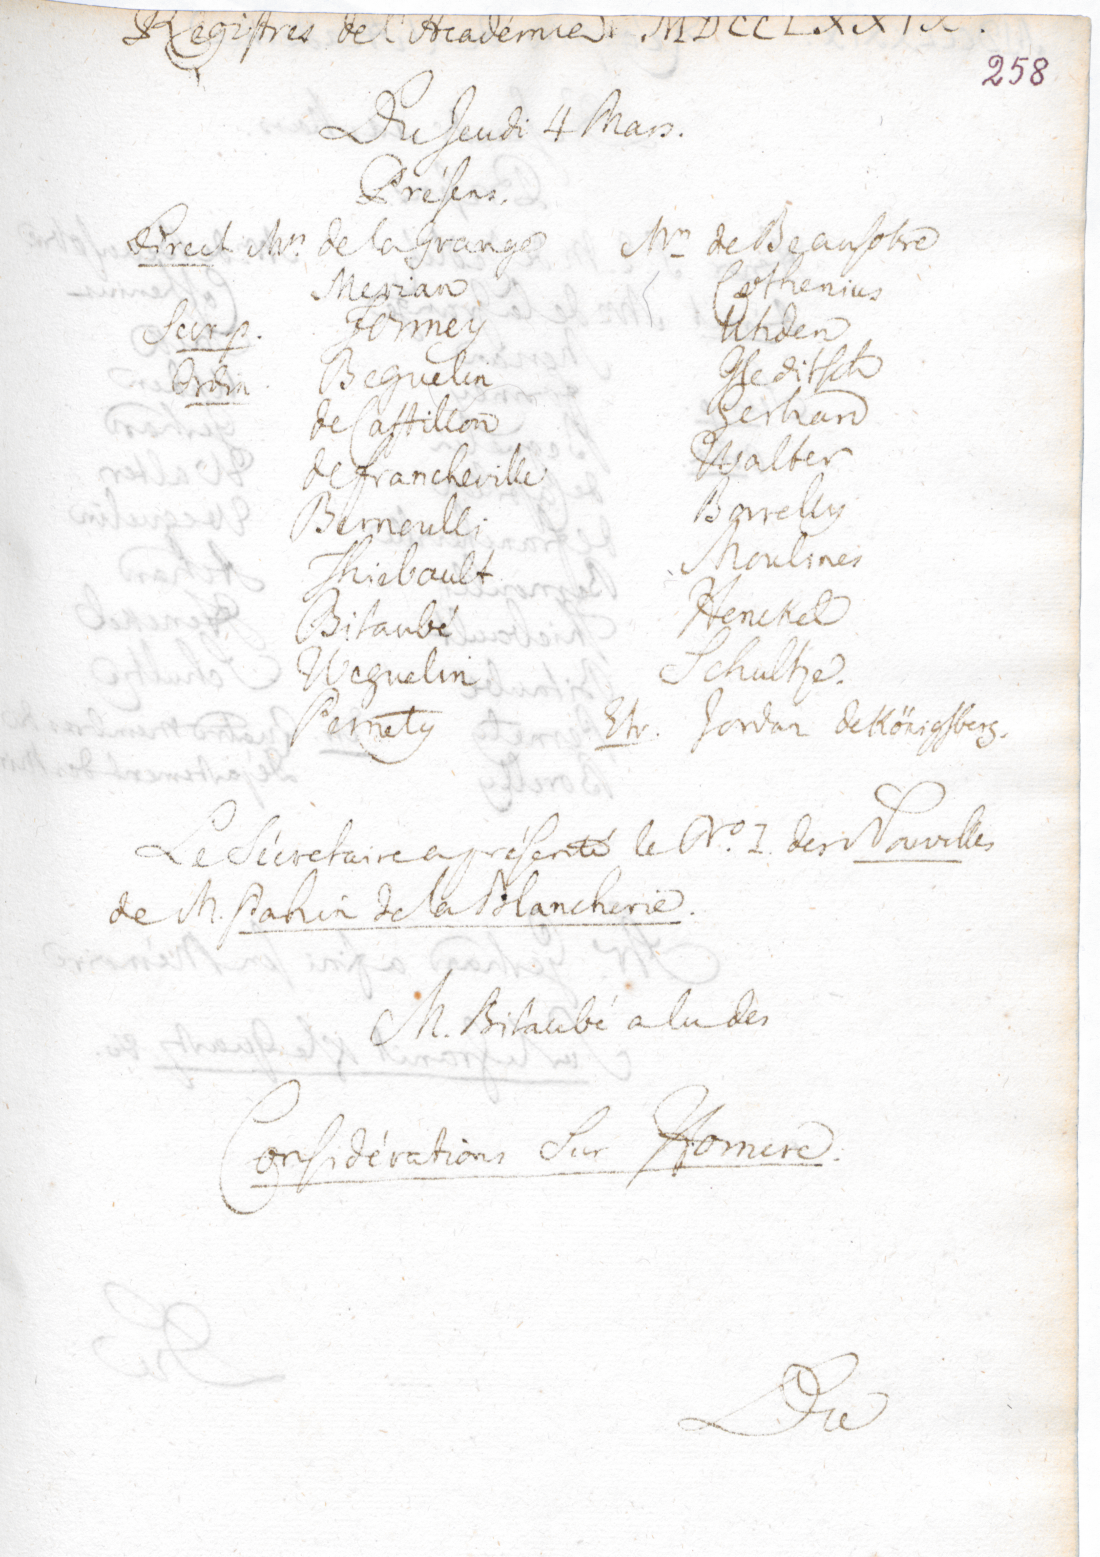 Registres de l'Académie. MDCCLXXIX.
258
Du Jeudi 4 Mars.
Présens.
Direct. Mrs. de la Grange
Merian
Secr. p. Formey
Ordin. Beguelin
de Castillon
de Francheville
Bernoulli
Thiebault
Bitaubé
Weguelin
Pernety
Mrs. de Beausobre
Cothenius
Uhden
Gleditsch
Gerhard
Walter
Borrelly
Moulines
Henckel
Schultze.
Etr. Jordan de Königsberg.
Le Sécretaire a présenté le No. I. des Nouvelles
de M. Pahin de la Blancherie.
M. Bitaubé a lu des
Considérations sur Homere.
Du